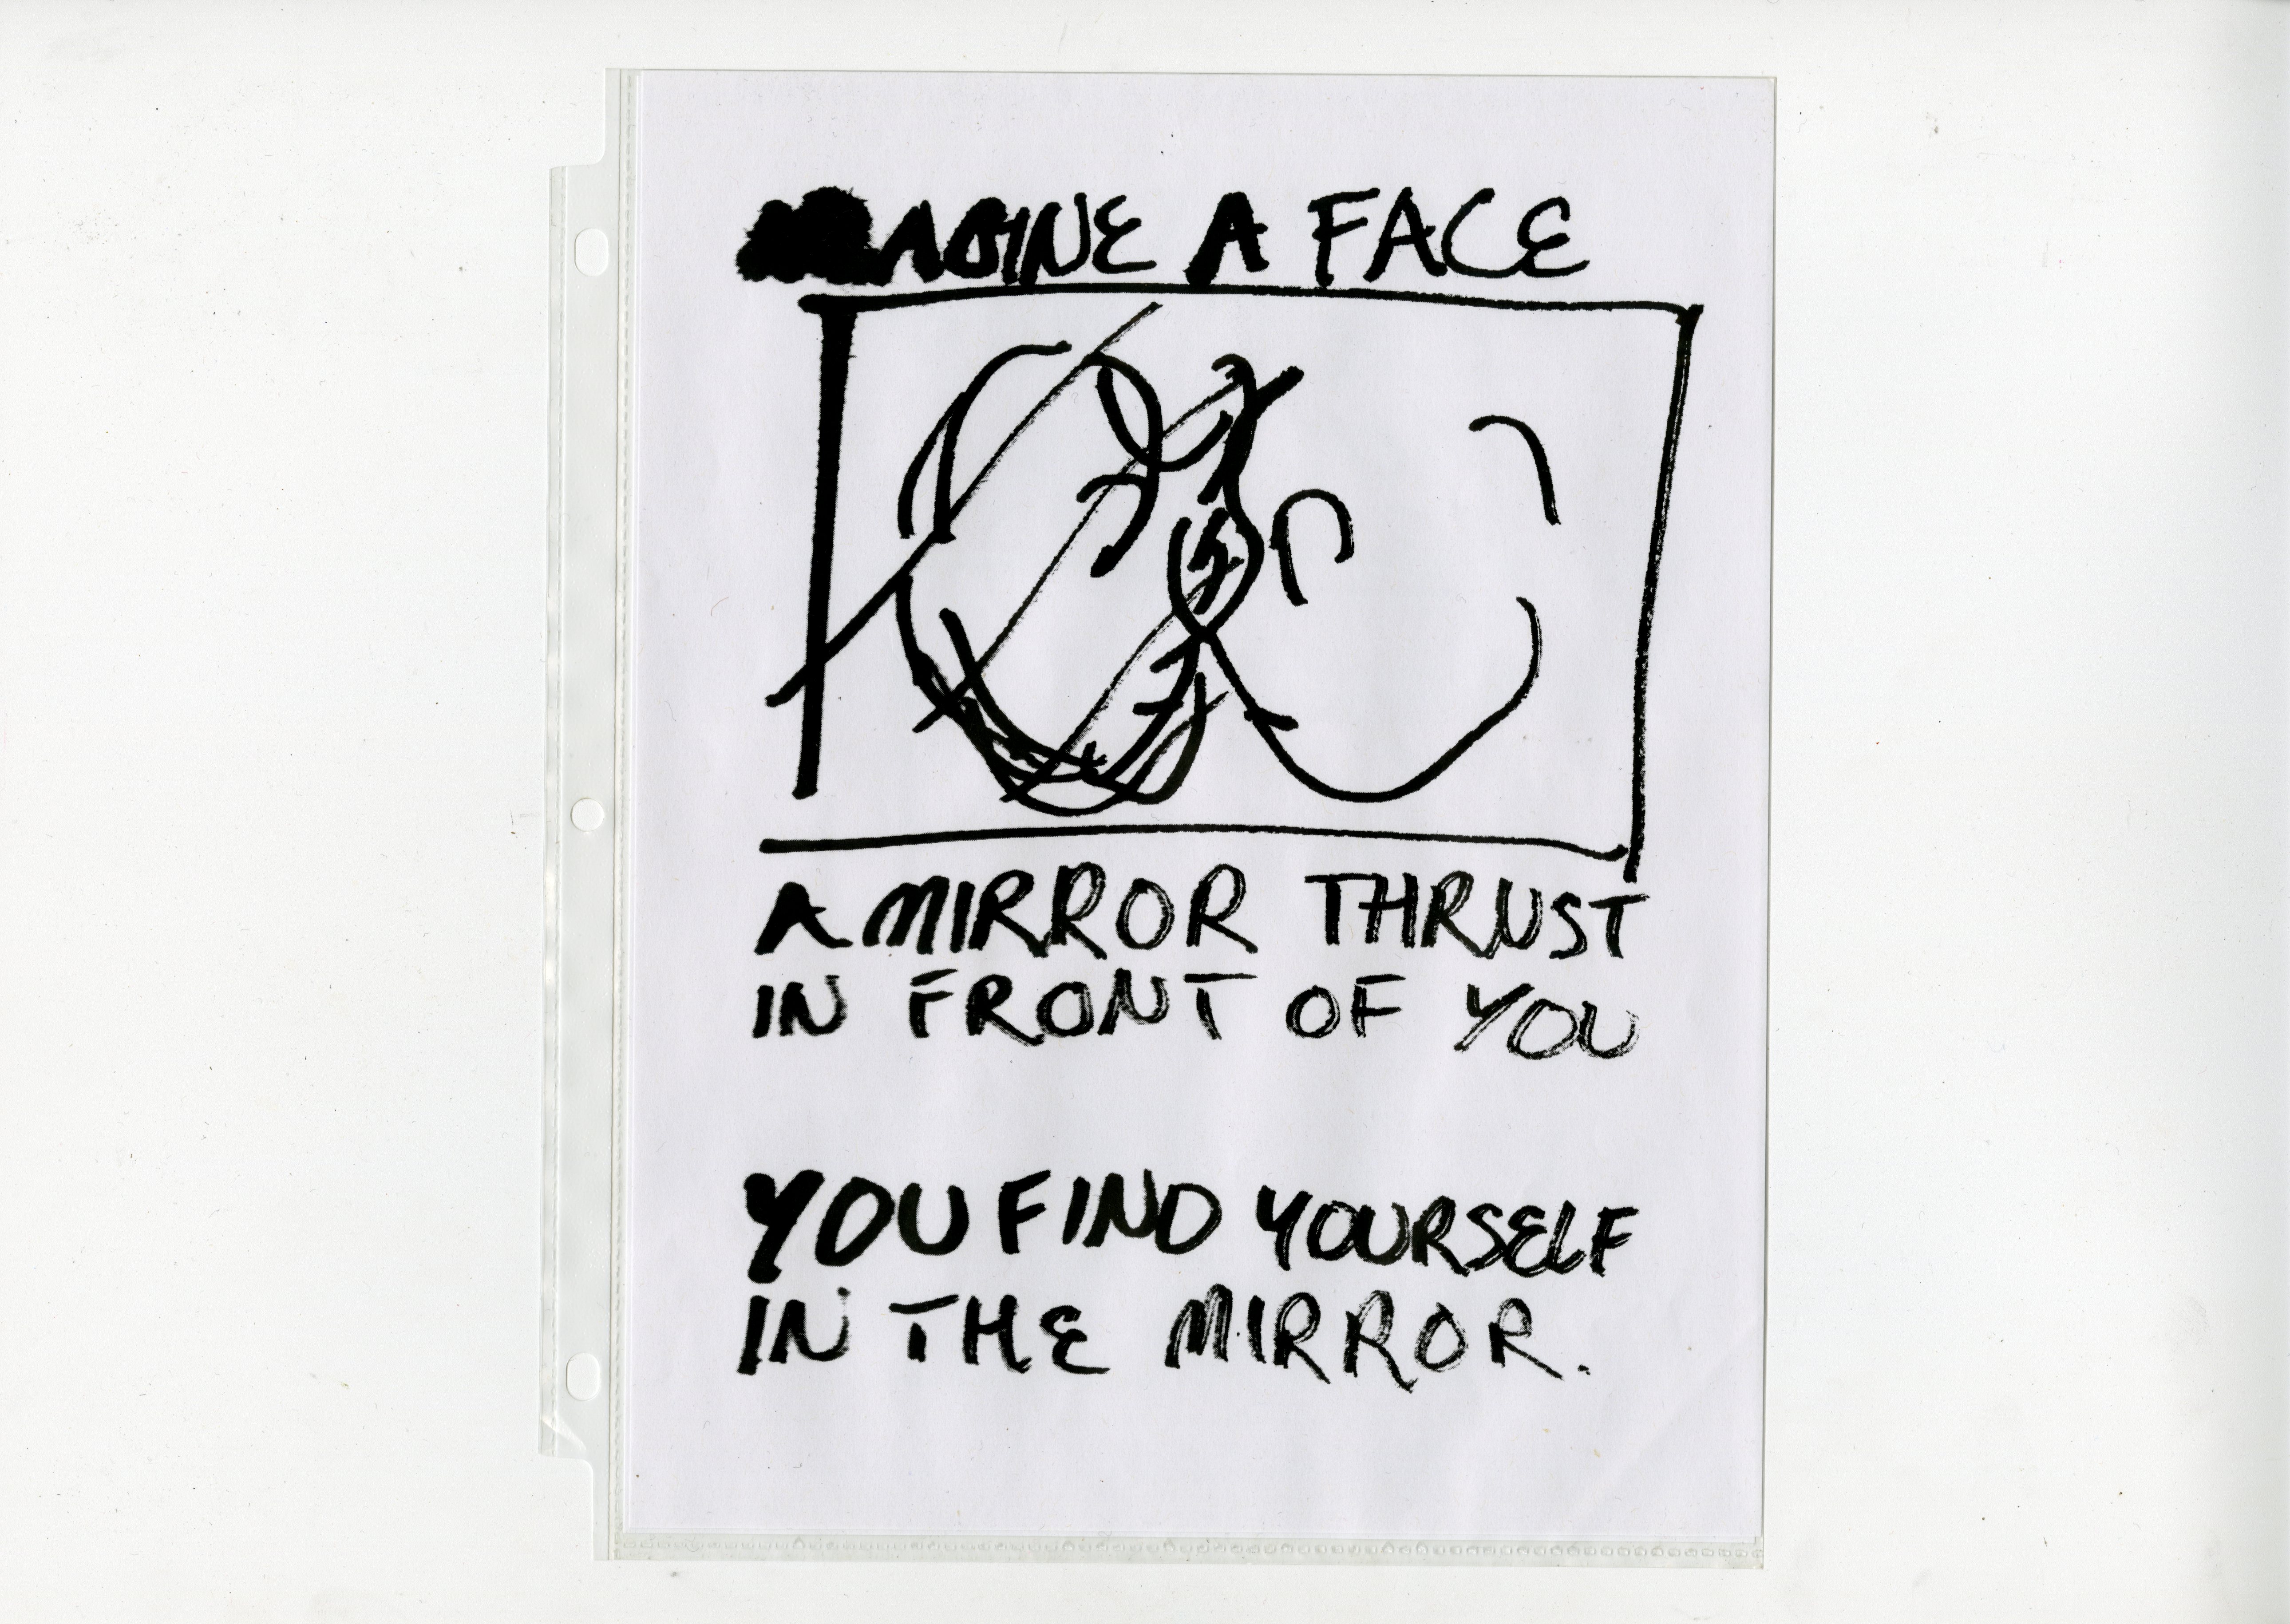 A FACE
A MIRROR THRUST
IN FRONT OF YOU
YOU FIND YOURSELF
IN THE MIRROR.